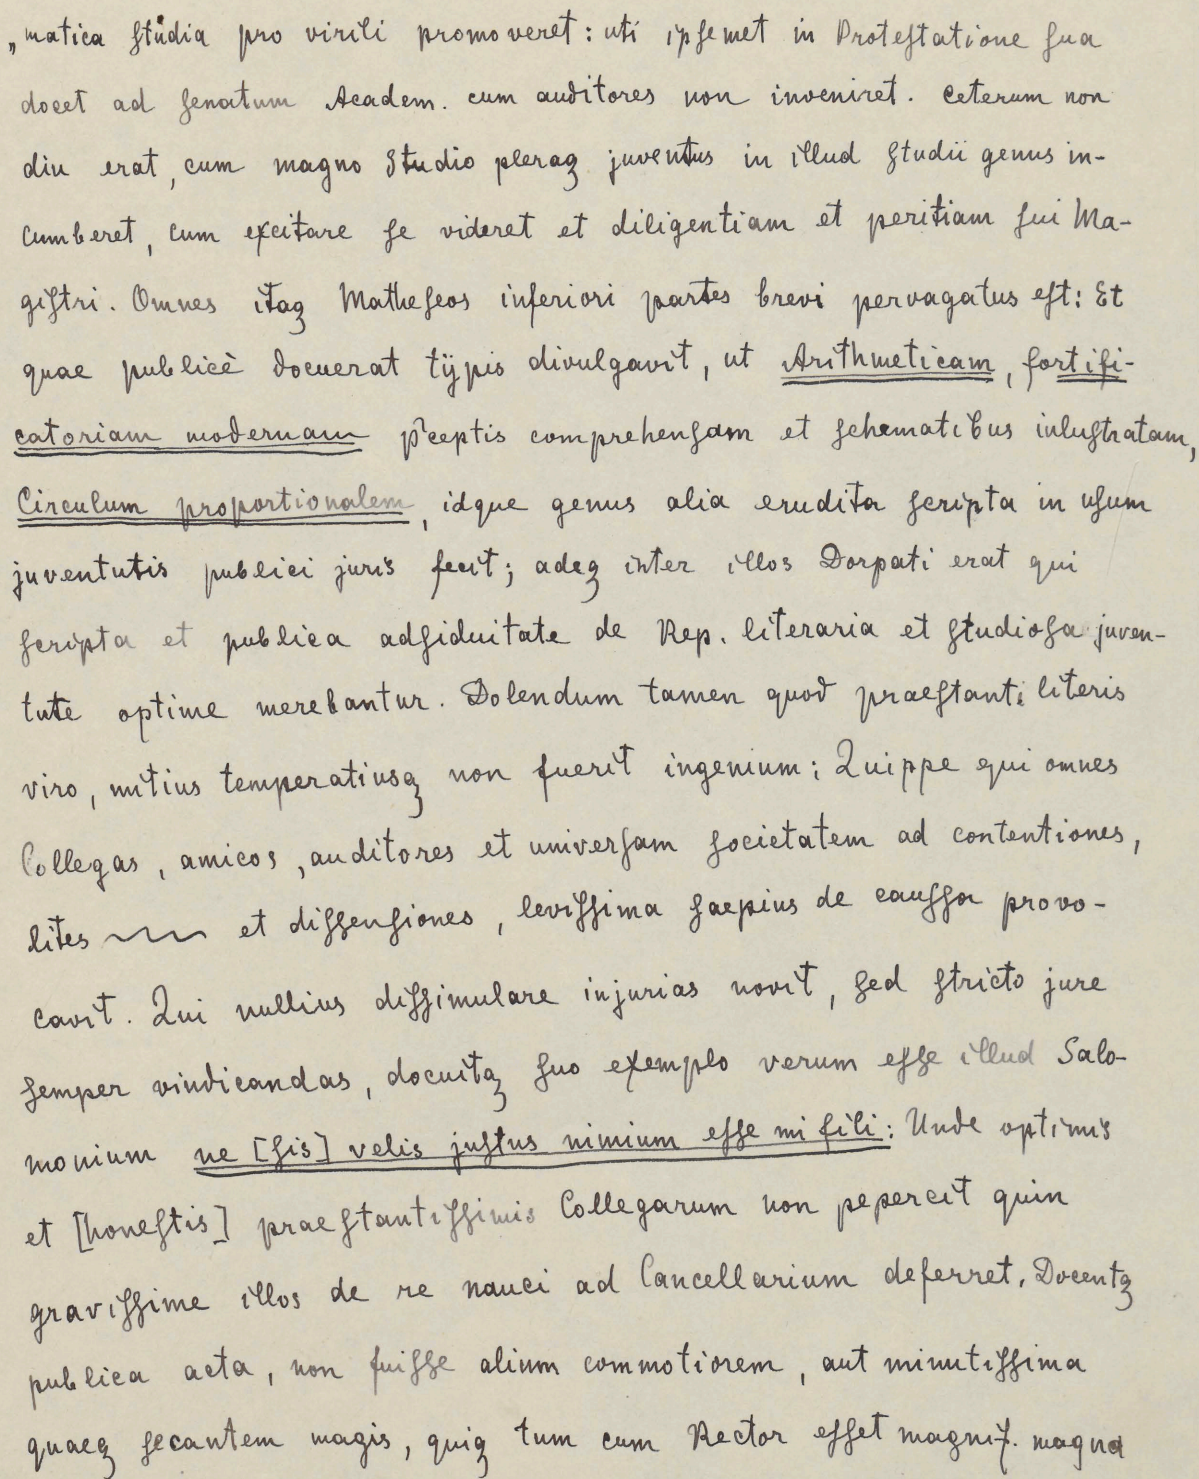 „matica ſtudia pro virili promoveret: uti ipſemet in Proteſtatione ſua
docet ad ſenatum Academ. cum auditores non inveniret. Ceterum non
diu erat, cum magno ſtudio pleraqꝫ juventus in illud ſtudii genus in-
cumberet, cum excitare ſe videret et diligentiam et peritiam ſui Ma-
giſtri. Omnes itaqꝫ Matheſeos inferiori partes brevi pervagatus eſt: Et
quae publicè docuerat tÿpis divulgavit, ut Arithmeticam, fortifi-
catoriam modernam p̃ceptis comprehenſam et ſchematibus inluſtratam,
Circulum proportionalem, idque genus alia erudita ſcripta in uſum
juventutis publici juris fecit; adeqꝫ inter illos Dorpati erat qui
ſcripta et publica adſiduitate de Rep. literaria et ſtudioſa juven-
tute optime merebantur. Dolendum tamen quod praeſtanti literis
viro, mitius temperatiusqꝫ non fuerit ingenium; Quippe qui omnes
Collegas, amicos, auditores et univerſam ſocietatem ad contentiones,
lites et diſſenſiones, leviſſima ſaepius de cauſſa provo-
cavit. Qui nullius diſſimulare injurias novit, ſed ſtricto jure
ſemper vindicandas, docuitqꝫ ſuo exemplo verum eſſe illud Salo-
monium ne [ſis] velis juſtus nimium eſſe mi fili: Unde optimis
et [honeſtis] praeſtantiſſimis Collegarum non pepercit quin
graviſſime illos de re nauci ad Cancellarium deferret. Docentqꝫ
publica acta, non fuiſſe alium commotiorem, aut minutiſſima
quaeqꝫ ſecantem magis, quiqꝫ tum cum Rector eſſet magnif. magna